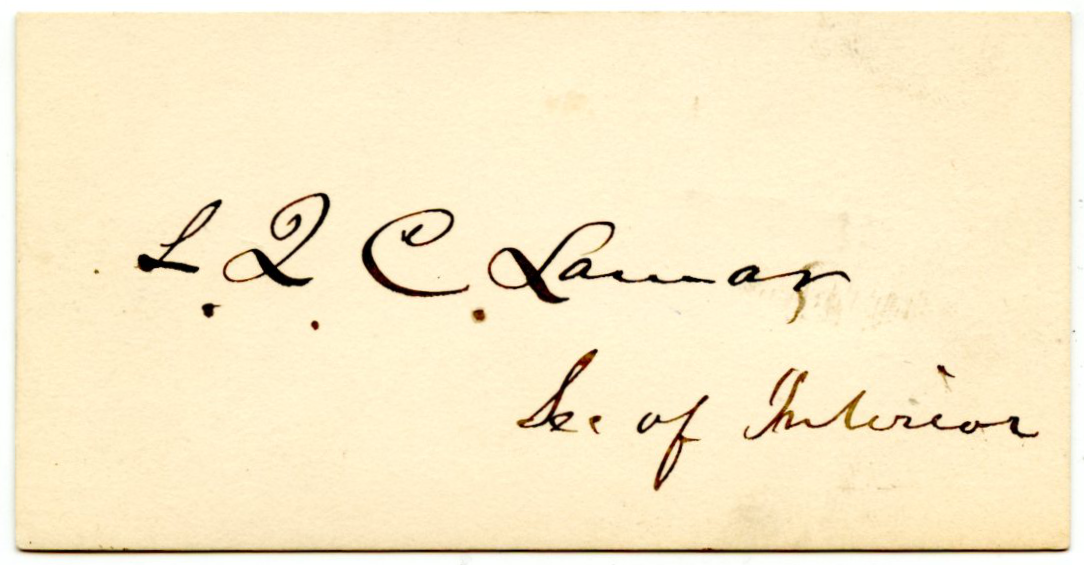 L. Q. C. Lamar
Sec of Interior